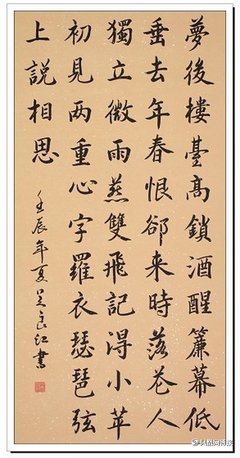 夢後樓臺高鎖酒醒簾幕低
垂去年春恨郤來時落花人
獨立微雨燕雙飛記得小苹
初見两重心字羅衣琵琶弦
上說相思
壬辰年夏吴良江書